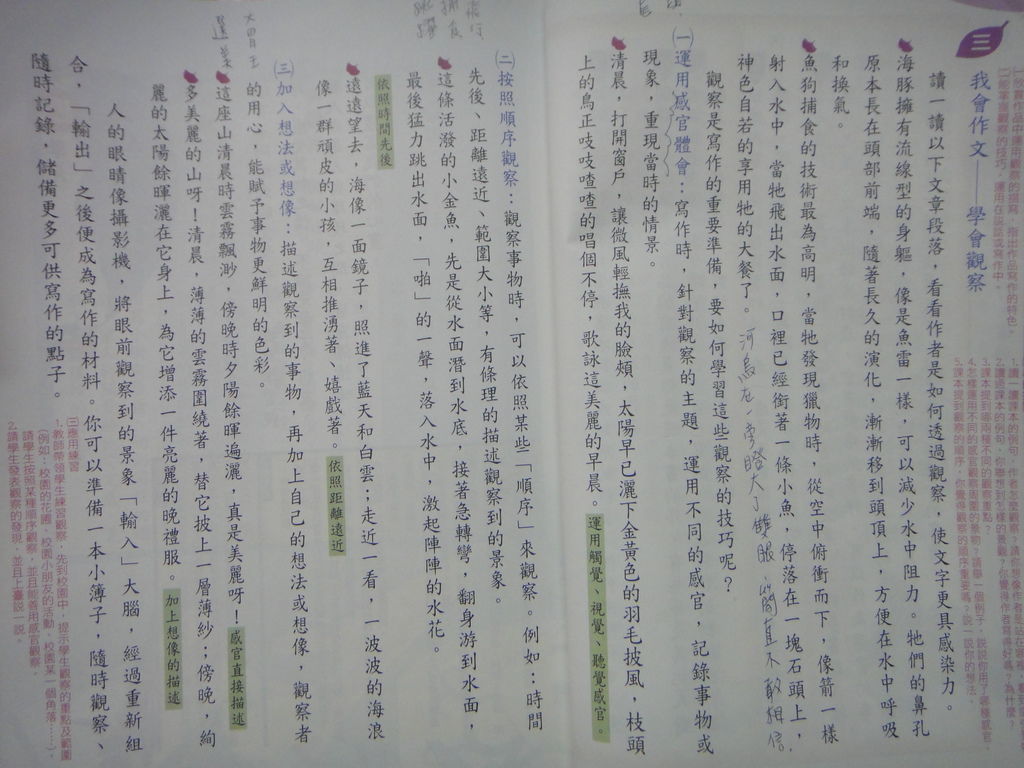 三
我會作文——學會觀察
讀一讀以下文章段落，看看作者是如何透過觀察，使文字更具感染力。
海豚擁有流線型的身軀，像是魚雷一樣，可以減少水中阻力。牠們的鼻孔
原本長在頭部前端，隨著長久的演化，漸漸移到頭頂上，方便在水中呼吸
和換氣。
魚狗捕食的技術最為高明，當牠發現獵物時，從空中俯衝而下，像箭一樣
射入水中，當牠飛出水面，口裡已經銜著一條小魚，停落在一塊石頭上，
神色自若的享用牠的大餐了。
觀察是寫作的重要準備，要如何學習這些觀察的技巧呢？
㈠運用感官體會：寫作時，針對觀察的主題，運用不同的感官，記錄事物或
現象，重現當時的情景。
清晨，打開窗戶，讓微風輕撫我的臉頰，太陽早已灑下金黃色的羽毛披風，枝頭
上的鳥正吱吱喳喳的唱個不停，歌詠這美麗的早晨。運用觸覺、視覺、聽覺感官。
㈡按照順序觀察：觀察事物時，可以依照某些「順序」來觀察。例如：時間
先後、距離遠近、範圍大小等，有條理的描述觀察到的景象。
這條活潑的小金魚，先是從水面潛到水底，接著急轉彎，翻身游到水面，
最後猛力跳出水面，「啪」的一聲，落入水中，激起陣陣的水花。
依照時間先後
遠遠望去，海像一面鏡子，照進了藍天和白雲；走近一看，一波波的海浪
像一群頑皮的小孩，互相推湧著、嬉戲著。依照距離遠近
㈢加入想法或想像：描述觀察到的事物，再加上自己的想法或想像，觀察者
的用心，能賦予事物更鮮明的色彩。
這座山清晨時雲霧飄渺，傍晚時夕陽餘暉遍灑，真是美麗呀！感官直接描述
多美麗的山呀！清晨，薄薄的雲霧圍繞著，替它披上一層薄紗；傍晚，絢
麗的太陽餘暉灑在它身上，為它增添一件亮麗的晚禮服。加上想像的描述
人的眼睛像攝影機，將眼前觀察到的景象「輸入」大腦，經過重新組
合，「輸出」之後便成為寫作的材料。你可以準備一本小簿子，隨時觀察、
隨時記錄，儲備更多可供寫作的點子。
㈢應用練習
1.教師帶領學生練習觀察，先到校園中，提示學生觀察的重點及範圍
(例如：校園的花圃、校園小朋友的活動、校園某一個角落……)。
請學生按照某種順序觀察，並且能善用感官觀察。
2.請學生發表觀察的發現，並且上臺說一說。